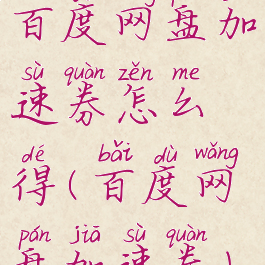 百度网盘加
sù quàn zěn me
速券怎么
dé bǎi dù wǎng
得(百度网
pán jiā sù quàn
盘加速券)